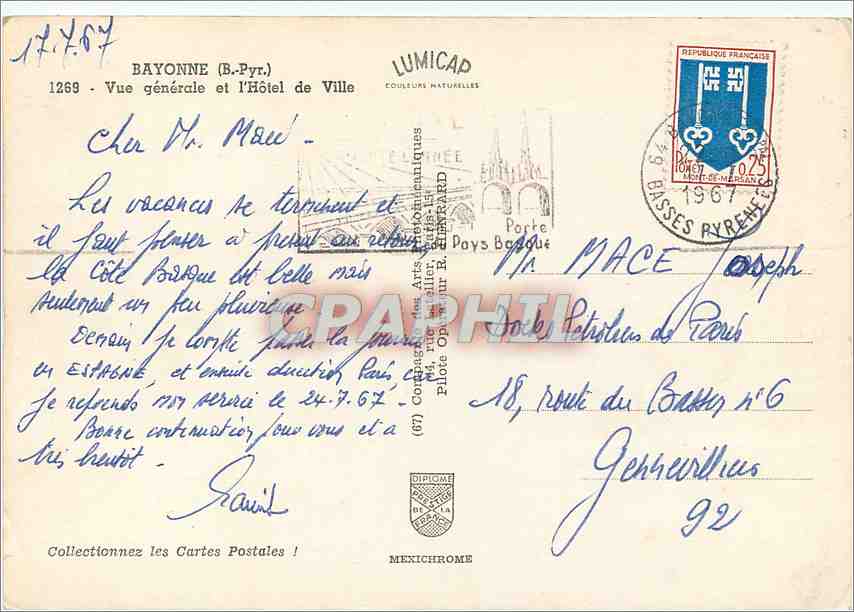 17.7.67
BAYONNE (B.-Pyr.)
1269 - Vue générale et l'Hôtel de Ville
LUMICAP
COULEURS NATURELLES
REPUBLIQUE FRANÇAISE
0,25
MONT-DE-MARSAN
64
1967
BASSES PYRENEES
Porte
du Pays Basque
Cher Mr. Macé -
Les vacances se terminent et
il faut penser à présent au retour
la Côte Basque est belle mais
seulement un peu pluvieuse
Demain je compte passer la journée
en ESPAGNE, et ensuite direction Paris, car
je reprends mon service le 24.7.67 -
Bonne continuation pour vous et à
très bientôt -
(67) Compagnie des Arts Photomécaniques
44, rue Letellier, Paris-15e
Pilote Operateur R. HENRARD
Mr. MACE Joseph
Docks Pétroliers de Paris
18, route du Bassin n° 6
Gennevilliers
92
CPAPHIL
DIPLOME
PRESTIGE
DE LA
FRANCE
MEXICHROME
Collectionnez les Cartes Postales !